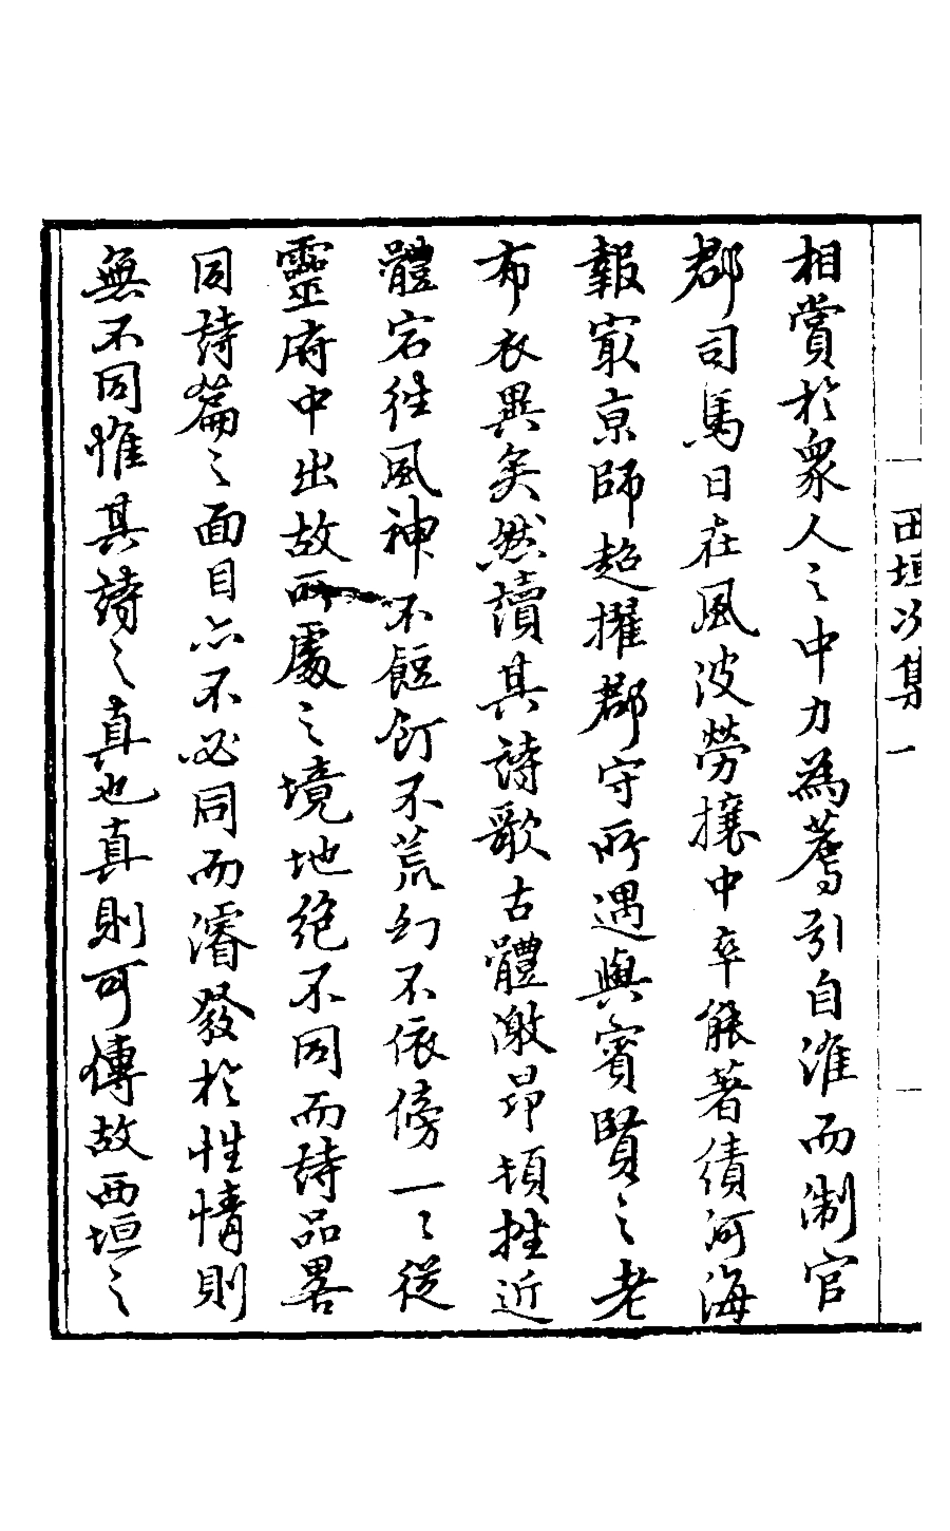 西垣次集 一
相賞於衆人之中力為薦引自淮而淛官
郡司馬日在風波勞攘中卒能著績河海
報冣京師超擢郡守所遇與賓賢之老
布衣異矣然讀其詩歌古體激昂頓挫近
體宕往風神不餖飣不荒幻不依傍一〻從
靈府中出故所處之境地絶不同而詩品畧
同詩篇之面目亦不必同而濬發於性情則
無不同惟其詩之真也真則可傳故西垣之